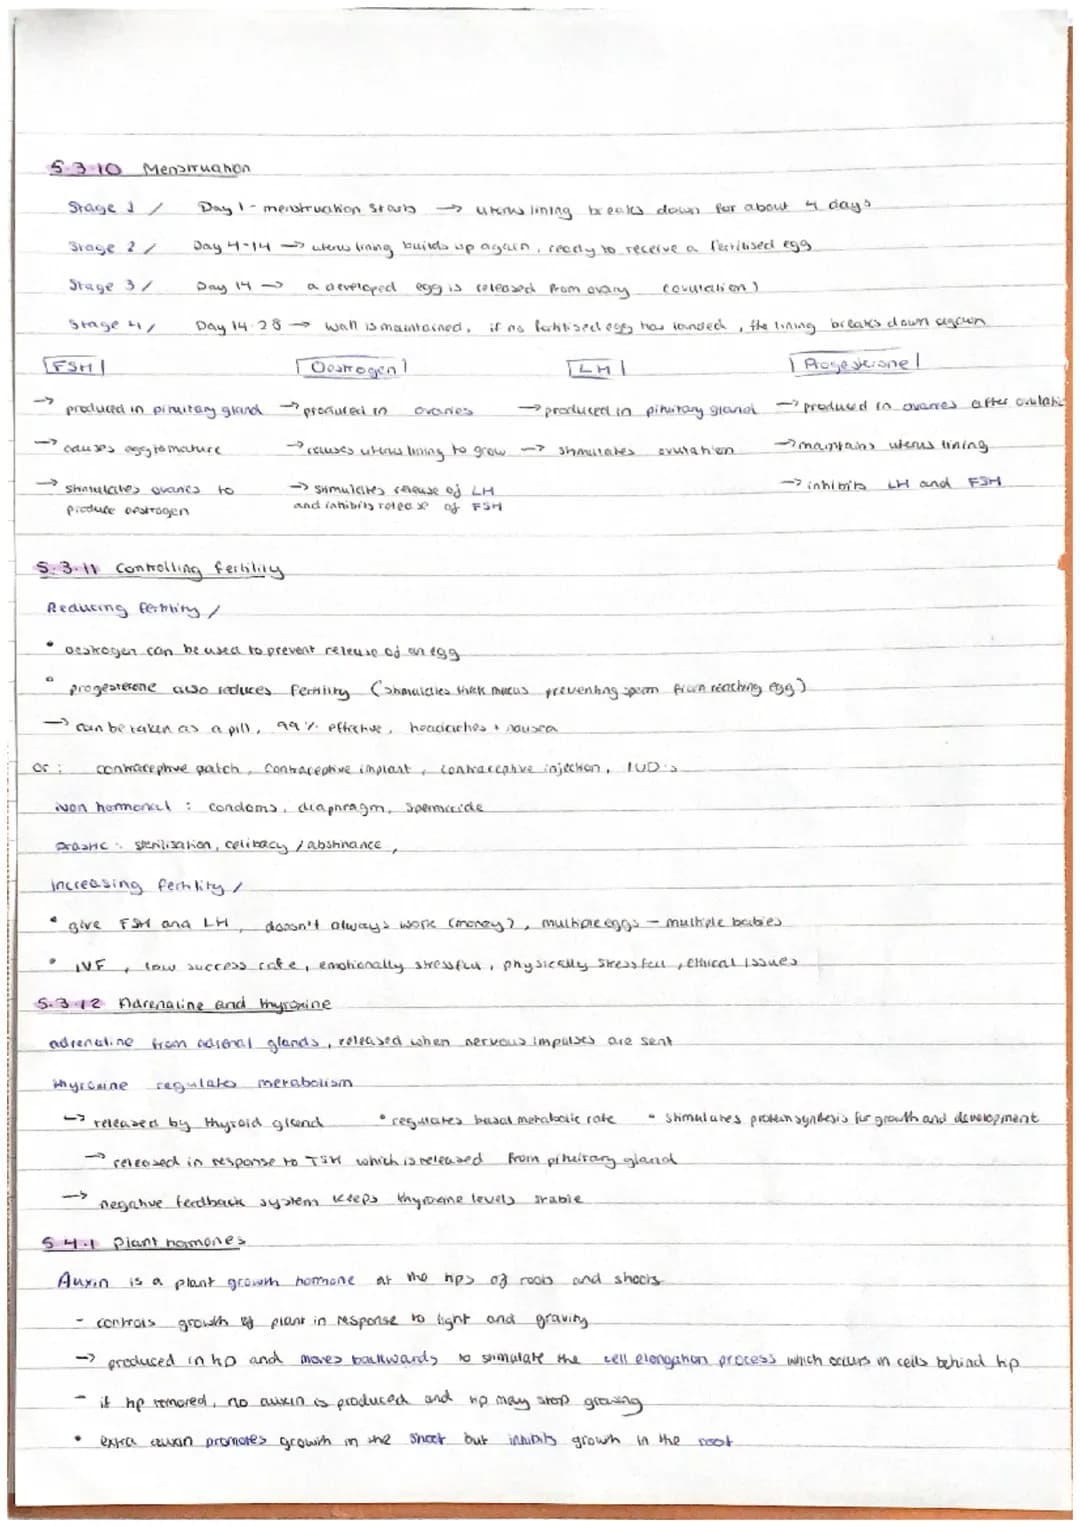 5.3.10 Menstruation
Stage 1 / Day 1 - menstruation starts → uterus lining breaks down for about 4 days
Stage 2 / Day 4-14 → uterus lining builds up again, ready to receive a fertilised egg
Stage 3 / Day 14 → a developed egg is released from ovary (ovulation)
Stage 4 / Day 14-28 → wall is maintained, if no fertilised egg has landed, the lining breaks down again
FSH Oestrogen LH Progesterone
→ produced in pituitary gland → produced in ovaries → produced in pituitary gland → produced in ovaries after ovulatio
→ causes egg to mature → causes uterus lining to grow → stimulates ovulation → maintains uterus lining
→ stimulates ovaries to → stimulates release of LH → inhibits LH and FSH
produce oestrogen and inhibits release of FSH
5.3.11 Controlling fertility
Reducing fertility /
• oestrogen can be used to prevent release of an egg
• progesterone also reduces fertility (stimulates thick mucus preventing sperm from reaching egg)
→ can be taken as a pill, 99% effective, headaches + nausea
or : contraceptive patch, contraceptive implant, contraceptive injection, IUD's
non hormonal : condoms, diaphragm, spermicide
Drastic : sterilisation, celibacy / abstinance,
increasing fertility /
• give FSH and LH, doesn't always work (money?), multiple eggs - multiple babies
• IVF, low success rate, emotionally stressful, physically stressful, ethical issues
5.3.12 Adrenaline and thyroxine
adrenaline from adrenal glands, released when nervous impulses are sent
thyroxine regulates metabolism
↳ released by thyroid gland • regulates basal metabolic rate • stimulates protein synthesis for growth and development
→ released in response to TSH which is released from pituitary gland
→ negative feedback system keeps thyroxine levels stable
5.4.1 Plant hormones
Auxin is a plant growth hormone at the tips of roots and shoots
- controls growth of plant in response to light and gravity
→ produced in tip and moves backwards to stimulate the cell elongation process which occurs in cells behind tip
- if tip removed, no auxin is produced and tip may stop growing
• extra auxin promotes growth in the shoot but inhibits growth in the root